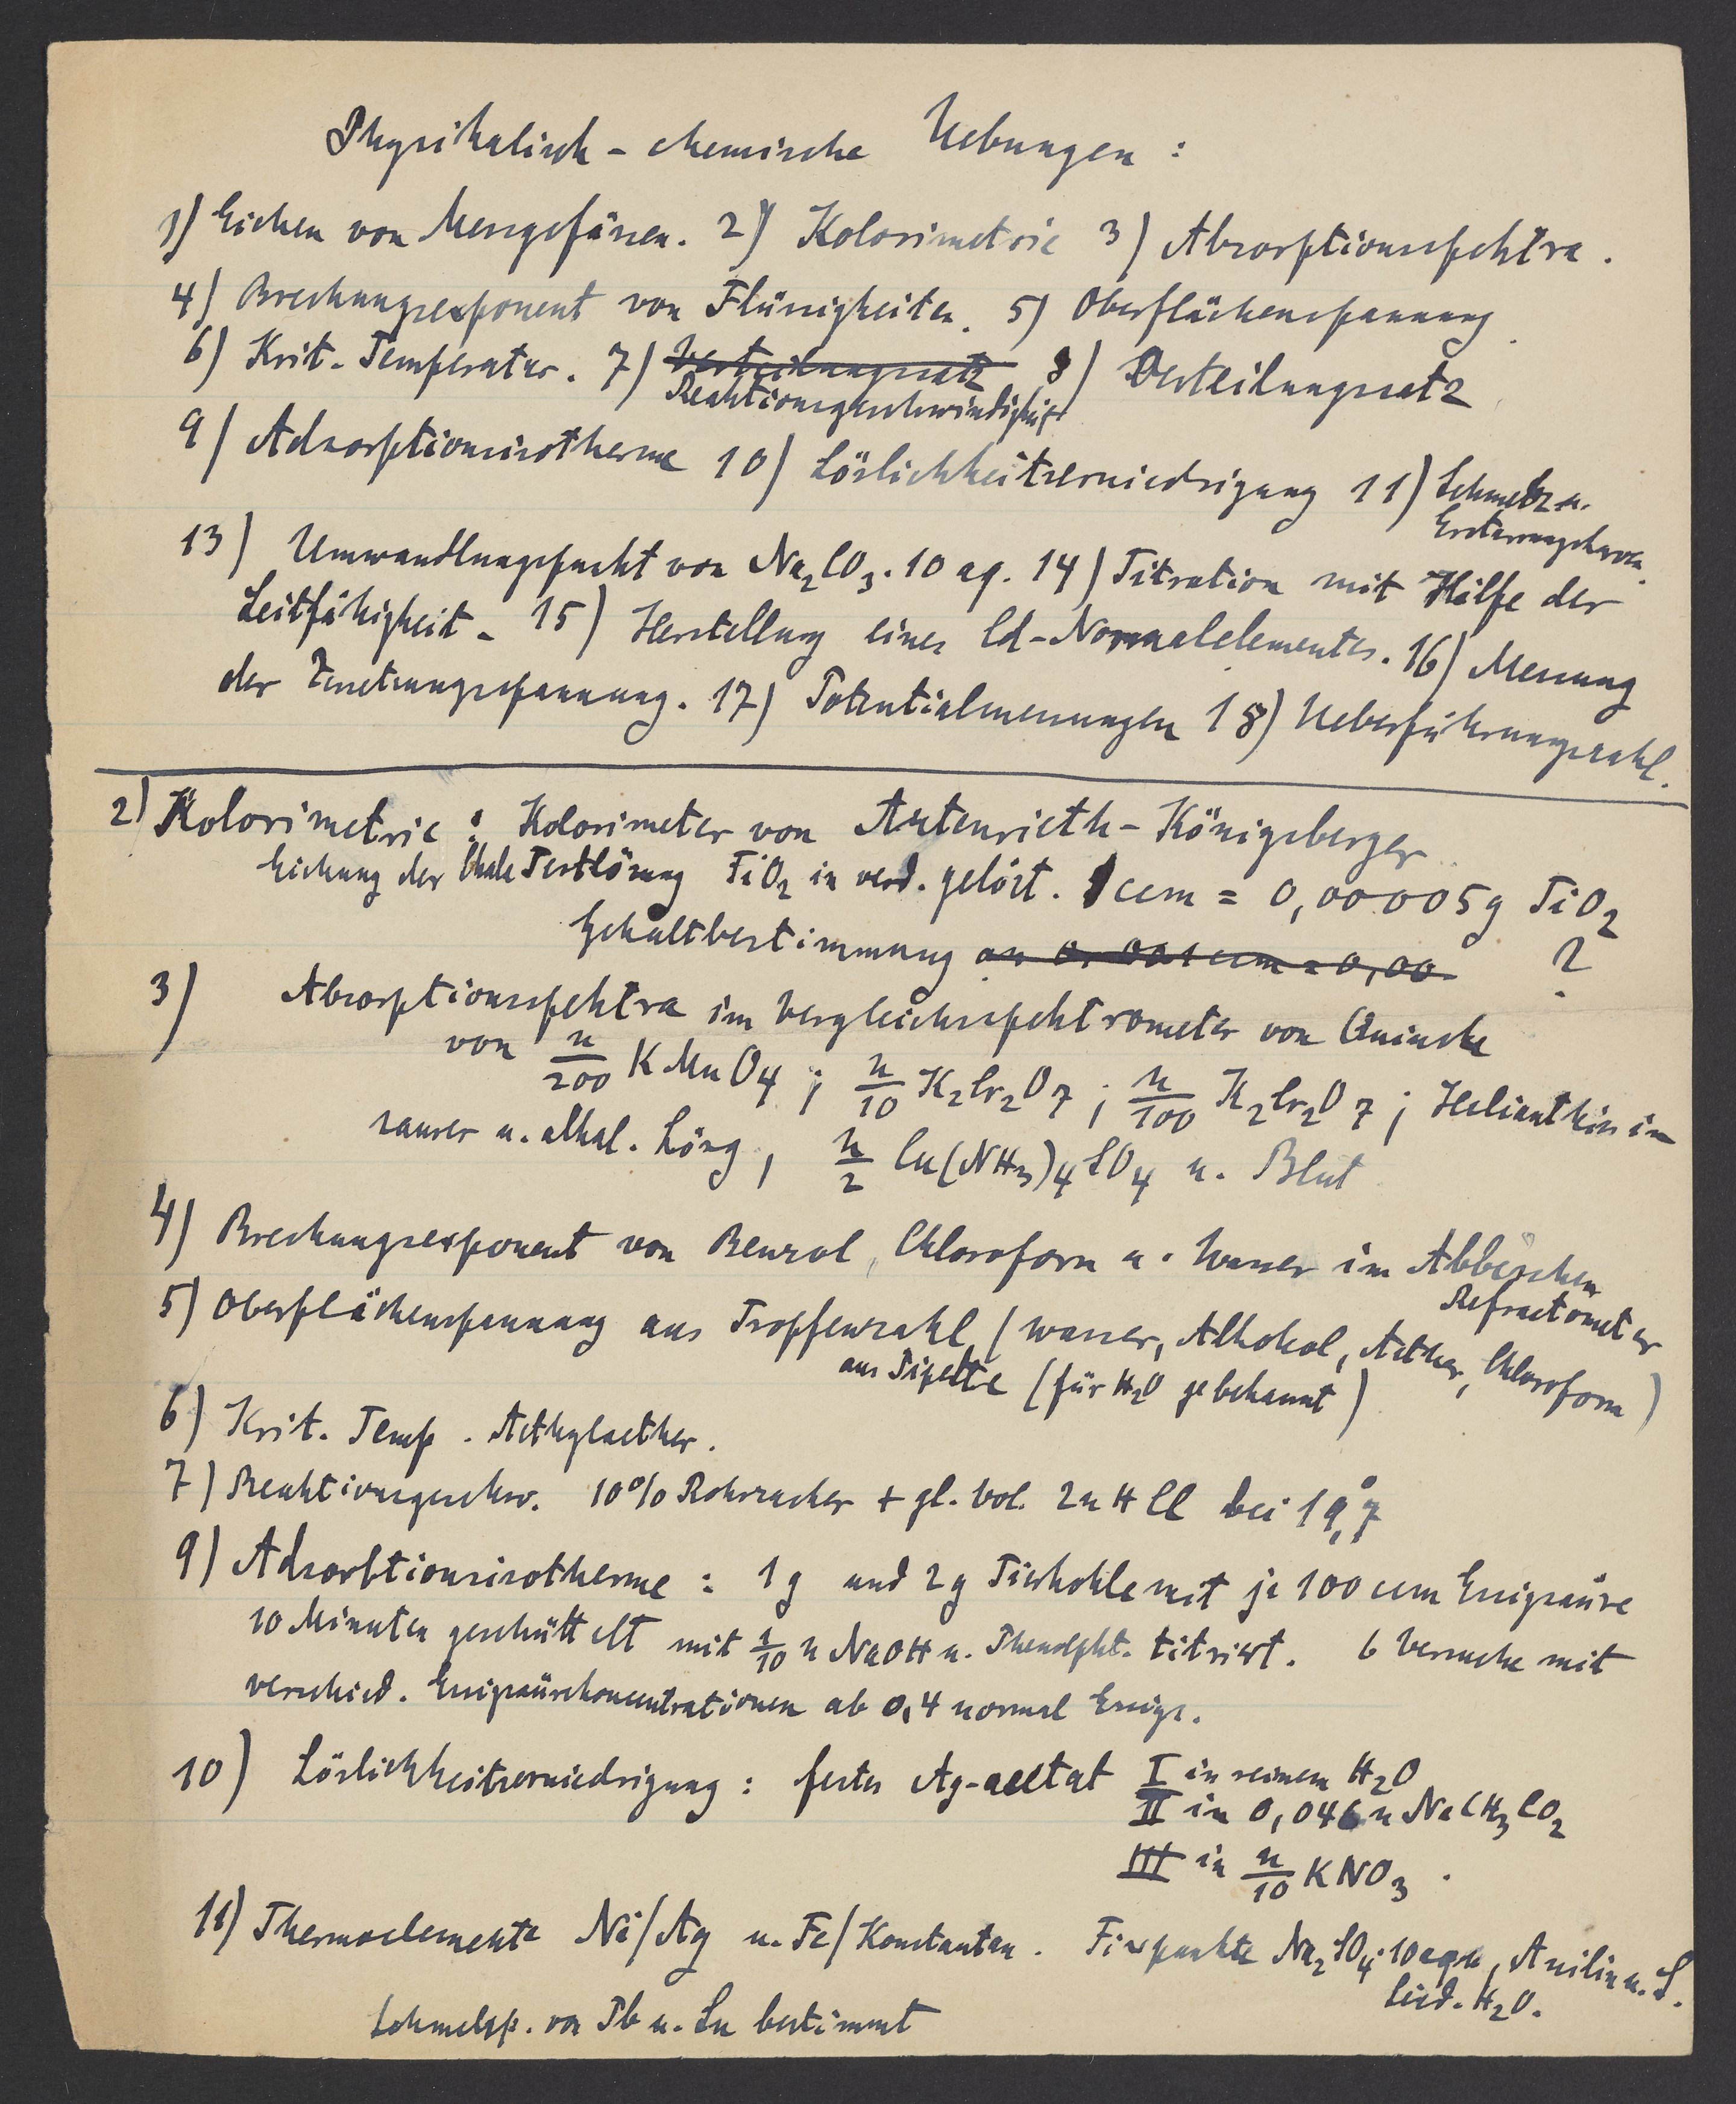 Physikalisch - chemische Uebungen :
1) Eichen von Messgefässen. 2) Kolorimetrie 3) Absorptionsspektra.
4) Brechungsexponent von Flüssigkeiten. 5) Oberflächenspannung.
6) Krit. Temperatur. 7) Verteilungssatz 8) Verteilungssatz
Reaktionsgeschwindigkeit
9) Adsorptionsisotherme 10) Löslichkeitserniedrigung 11) Schmelz u.
Erstarrungskurve.
13) Umwandlungspunkt von Na2CO3.10 aq. 14) Titration mit Hilfe der
Leitfähigkeit - 15) Herstellung eines Cd-Normalelementes. 16) Messung
der Zersetzungsspannung. 17) Potentialmessungen 18) Ueberführungszahl.
2) Kolorimetrie : Kolorimeter von Autenrieth - Königsberger
Eichung der Skale Testlösung TiO2 in verd. gelöst. 1 ccm = 0,00005g TiO2
Gehaltbestimmung ccm = 0,00 ?
3) Absorptionsspektra im Vergleichsspektrometer von Quincke
von n/200 KMnO4 ; n/10 K2Cr2O7 ; n/100 K2Cr2O7 ; Helianthin in
saurer u. alkal. Lösg, n/2 Cu(NH3)4SO4 u. Blut
4) Brechungsexponent von Benzol, Chloroform u. Wasser im Abbeischen
Refractometer
5) Oberflächenspannung aus Tropfenzahl (wasser, Alkohol, Aether, Chloroform)
aus Pipette (für H2O gebekannt)
6) Krit. Temp. Aethylaether.
7) Reaktionsgeschw. 10% Rohrzucker + gl. Vol. 2n HCl bei 19,°7
9) Adsorbtionsisotherme : 1g und 2g Tierkohle mit je 100 ccm Essigsäure
10 Minuten geschüttelt mit 1/10 n NaOH u. Phenolpht. titriert. 6 Versuche mit
verschied. Essigsäurekonzentrationen ab 0,4 normal Essigs.
10) Löslichkeitserniedrigung : festes Ag-acetat I in reinem H2O
II in 0,046 n NaCH3CO2
III in n/10 KNO3 .
11) Thermoelemente Ni/Ag u. Fe/Konstantan. Fixpunkte Na2SO4.10aqu, Anilin u. S.
Sied. H2O.
Schmelzp. von Pb u. Sn bestimmt